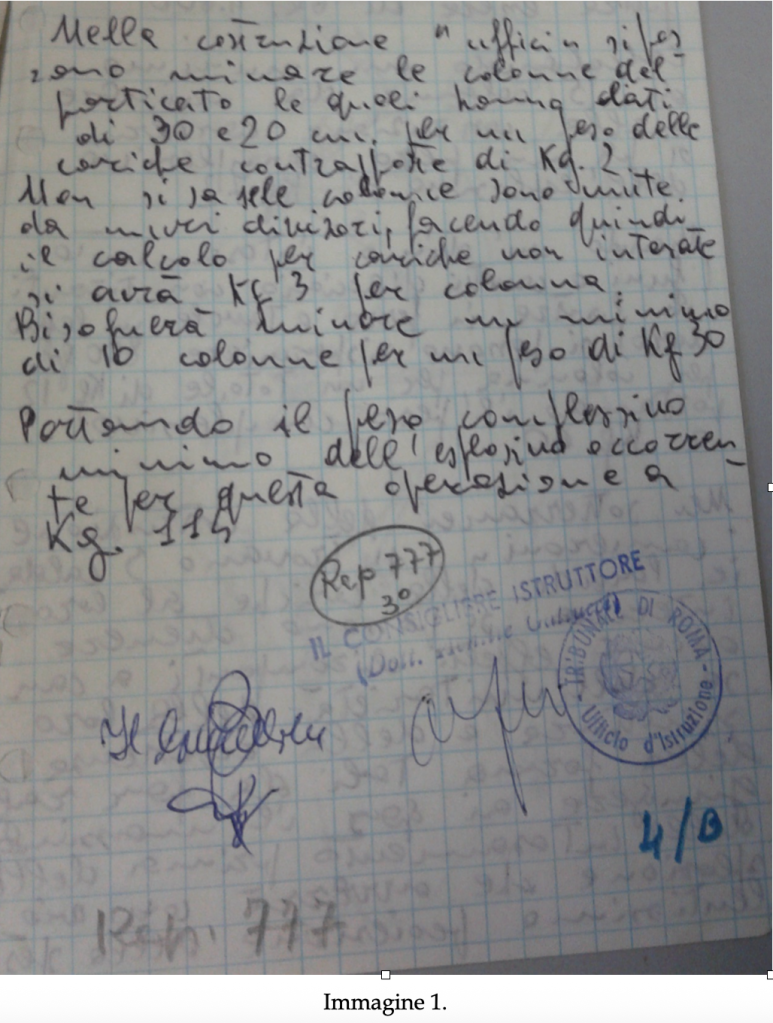 Nella costruzione "uffici" si pos-
sono minare le colonne del
porticato le quali hanno dati
di 30 e 20 cm. per un peso delle
cariche contrapposte di Kg. 2
Non si sa se le colonne sono unite
da muri divisori, facendo quindi
il calcolo per cariche non intasate
si avrà Kg 3 per colonna.
Bisognerà minare un minimo
di 10 colonne per un peso di Kg 30
Portando il peso complessivo
minimo dell'esplosivo occorren-
te per questa operazione a
Kg. 114
Rep 777
3°
IL CONSIGLIERE ISTRUTTORE
(Dott.
TRIBUNALE DI ROMA
Ufficio d'Istruzione
Il
4/B
Rep. 777
Immagine 1.